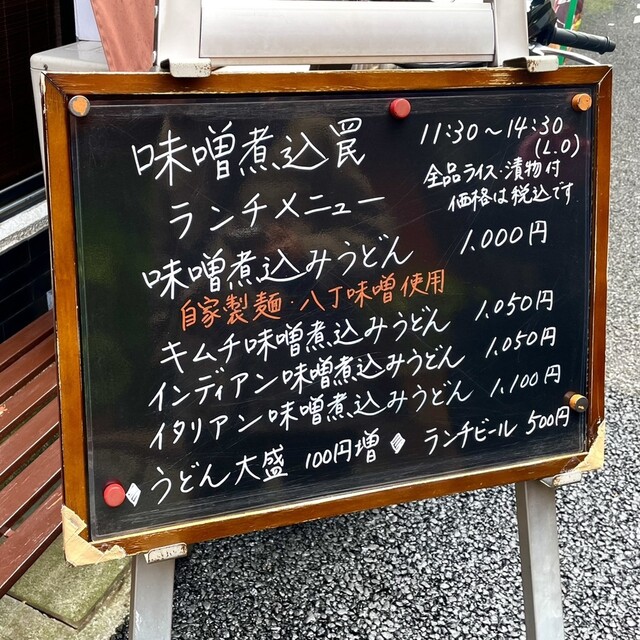 味噌煮込罠
11:30〜14:30
(L.O)
ランチメニュー
全品ライス・漬物付
価格は税込です
味噌煮込みうどん 1.000円
自家製麺・八丁味噌使用
キムチ味噌煮込みうどん 1.050円
インディアン味噌煮込みうどん 1.050円
イタリアン味噌煮込みうどん 1.100円
うどん大盛 100円増 ランチビール 500円